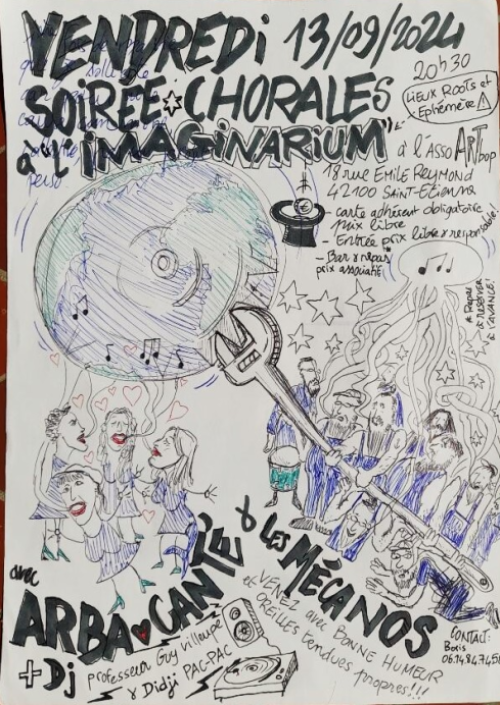 VENDREDI 13/09/2024
20H30
SOIRÉE CHORALES
LIEUX ROOTS et
Ephémère
à l'"IMAGINARIUM"
à l'Asso ARTbop
18 rue EMILE REYMOND
42100 SAINT-ETIENNE
- carte adhérent obligatoire
prix libre
- Entrée prix libre & responsable!
- Bar & repas
prix associatif
* Repas
à RESERVER
à l'AVANCE!
avec
ARBA CANTÉ & LES MÉCANOS
+ Dj professeur Guy Villoupé
& Didji PAC-PAC
et VENEZ avec BONNE HUMEUR
OREILLES tendues propres!!!
CONTACT:
Boris